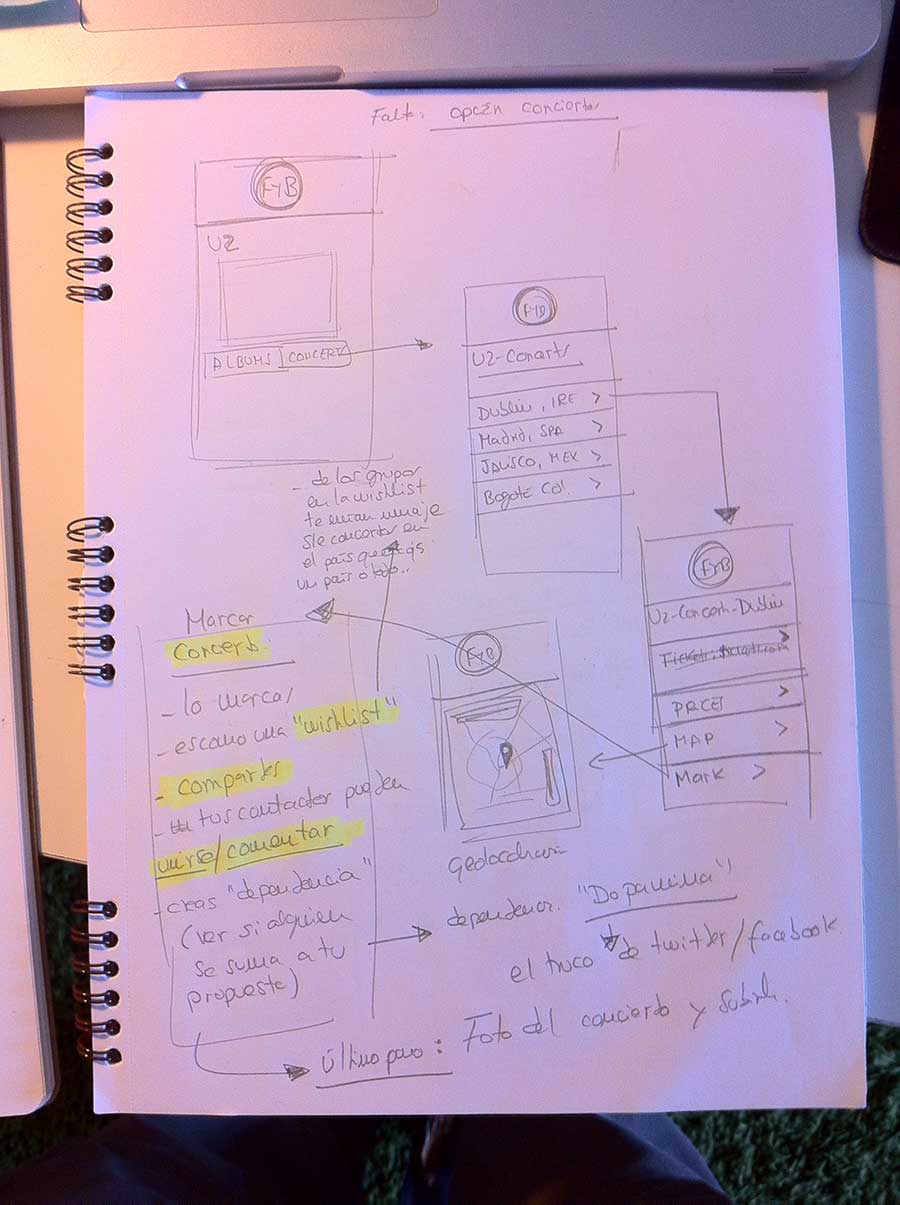 Falta: opción concierto
FYB
U2
ALBUMS | CONCERT
FYB
U2-Concerts
Dublin, IRE >
Madrid, SPA >
JALISCO, MEX >
Bogotá Col. >
- de los grupos
en la wishlist
te envían
si de concierto en
el país que
un país o todo..
FYB
U2-Concerts-Dublin
>
PRCES >
MAP >
Mark >
Marcar
Concierto.
- lo marcas
- es como una "wishlist"
- compartes
- tus contactos pueden
unirse/comentar
- creas "dependencia"
(ver si alguien
se suma a tu
propuesta)
FYB
geolocalización
dependencia. "Dopamina"
el truco de twitter/facebook.
Último paso: Foto del concierto y subirla.